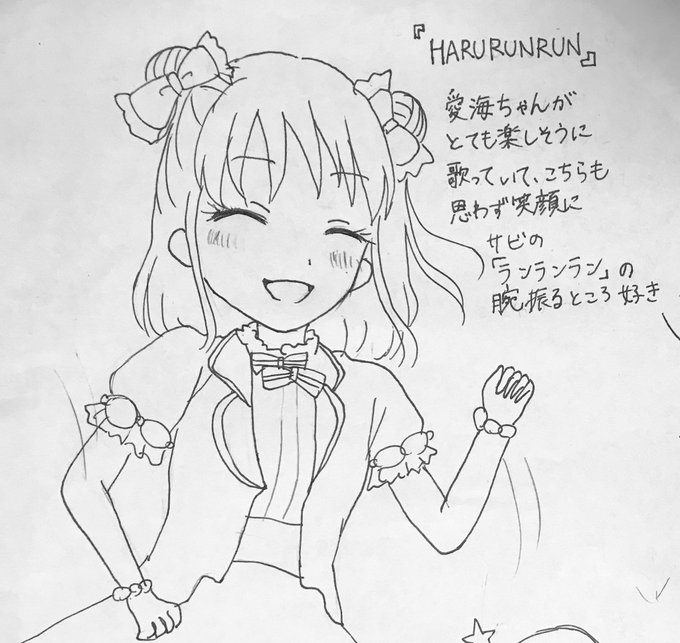 『HARURUNRUN』
愛海ちゃんが
とても楽しそうに
歌っていて、こちらも
思わず笑顔に
サビの
「ランランラン」の
腕振るところ好き